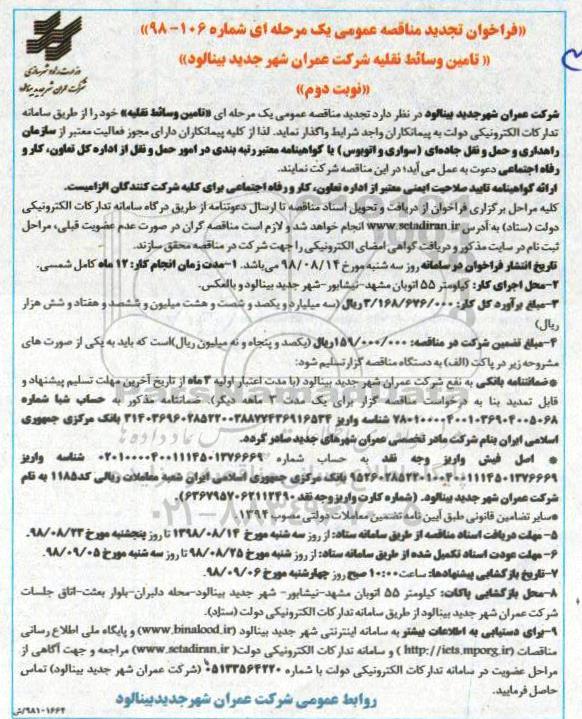 «فراخوان تجدید مناقصه عمومی یک مرحله ای شماره ۱۰۶-۹۸»
« تامین وسائط نقلیه شرکت عمران شهر جدید بینالود»
«نوبت دوم»
وزارت راه و شهرسازی
شرکت عمران شهر جدید بینالود
شرکت عمران شهرجدید بینالود در نظر دارد تجدید مناقصه عمومی یک مرحله ای «تامین وسائط نقلیه» خود را از طریق سامانه
تدارکات الکترونیکی دولت به پیمانکاران واجد شرایط واگذار نماید. لذا از کلیه پیمانکاران دارای مجوز فعالیت معتبر از سازمان
راهداری و حمل و نقل جاده‌ای (سواری و اتوبوس) یا گواهینامه معتبر رتبه بندی در امور حمل و نقل از اداره کل تعاون، کار و
رفاه اجتماعی دعوت به عمل می آید؛ در این مناقصه شرکت نمایند.
ارائه گواهینامه تایید صلاحیت ایمنی معتبر از اداره تعاون، کار و رفاه اجتماعی برای کلیه شرکت کنندگان الزامیست.
کلیه مراحل برگزاری فراخوان از دریافت و تحویل اسناد مناقصه تا ارسال دعوتنامه از طریق درگاه سامانه تدارکات الکترونیکی
دولت (ستاد) به آدرس www.setadiran.ir انجام خواهد شد و لازم است مناقصه گران در صورت عدم عضویت قبلی، مراحل
ثبت نام در سایت مذکور و دریافت گواهی امضای الکترونیکی را جهت شرکت در مناقصه محقق سازند.
تاریخ انتشار فراخوان در سامانه روز سه شنبه مورخ ۹۸/۰۸/۱۴ می‌باشد. ۱-مدت زمان انجام کار: ۱۲ ماه کامل شمسی.
۲-محل اجرای کار: کیلومتر ۵۵ اتوبان مشهد-نیشابور-شهر جدید بینالود و بالعکس.
۳-مبلغ برآورد کل کار: ۳/۱۶۸/۶۷۶/۰۰۰ ریال (سه میلیارد و یکصد و شصت و هشت میلیون و ششصد و هفتاد و شش هزار
ریال)
۴-مبلغ تضمین شرکت در مناقصه: ۱۵۹/۰۰۰/۰۰۰ریال (یکصد و پنجاه و نه میلیون ریال)است که باید به یکی از صورت های
مشروحه زیر در پاکت (الف) به دستگاه مناقصه گزار تسلیم شود:
*ضمانتنامه بانکی به نفع شرکت عمران شهر جدید بینالود (با مدت اعتبار اولیه ۳ ماه از تاریخ آخرین مهلت تسلیم پیشنهاد و
قابل تمدید بنا به درخواست مناقصه گزار برای یک مدت ۳ ماهه دیگر). ضمانتنامه مذکور به حساب شبا شماره
شناسه واریز بانک مرکزی جمهوری
اسلامی ایران بنام شرکت مادر تخصصی عمران شهرهای جدید صادر گردد.
* اصل فیش واریز وجه نقد به حساب شماره شناسه واریز
بانک مرکزی جمهوری اسلامی ایران شعبه معاملات ریالی کد۱۱۸۵ به نام
شرکت عمران شهر جدید بینالود. (شماره کارت واریز وجه نقد ۶۳۶۷۹۵۷۰۶۲۱۱۲۴۹۰).
*سایر تضامین قانونی طبق آیین نامه تضمین معاملات دولتی مصوب ۱۳۹۴.
۵- مهلت دریافت اسناد مناقصه از طریق سامانه ستاد: از روز سه شنبه مورخ ۱۳۹۸/۰۸/۱۴ تا روز پنجشنبه مورخ ۹۸/۰۸/۲۳.
۶- مهلت عودت اسناد تکمیل شده از طریق سامانه ستاد: از روز شنبه مورخ ۹۸/۰۸/۲۵ تا روز سه شنبه مورخ ۹۸/۰۹/۰۵.
۷-تاریخ بازگشایی پیشنهادها: ساعت ۱۰:۰۰ صبح روز چهارشنبه مورخ ۹۸/۰۹/۰۶.
۸-محل بازگشایی پاکات: کیلومتر ۵۵ اتوبان مشهد-نیشابور- شهر جدید بینالود-محله دلبران-بلوار بعثت-اتاق جلسات
شرکت عمران شهر جدید بینالود از طریق سامانه تدارکات الکترونیکی دولت (ستاد).
۹-برای دستیابی به اطلاعات بیشتر به سامانه اینترنتی شهر جدید بینالود (www.binalood.ir) و پایگاه ملی اطلاع رسانی
مناقصات (http://iets.mporg.ir ) و سامانه تدارکات الکترونیکی دولت( www.setadiran.ir) مراجعه و جهت آگاهی از
مراحل عضویت در سامانه تدارکات الکترونیکی دولت با شماره ۰۵۱۳۳۵۶۴۲۲۰ (شرکت عمران شهر جدید بینالود) تماس
حاصل فرمایید.
روابط عمومی شرکت عمران شهرجدیدبینالود
۹۸۱۰۱۶۶۴/ش